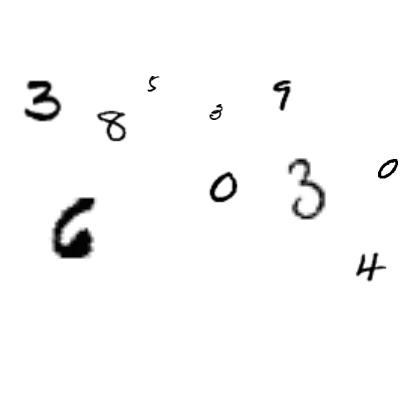 3 8 5 3 9
6 0 3 0
4